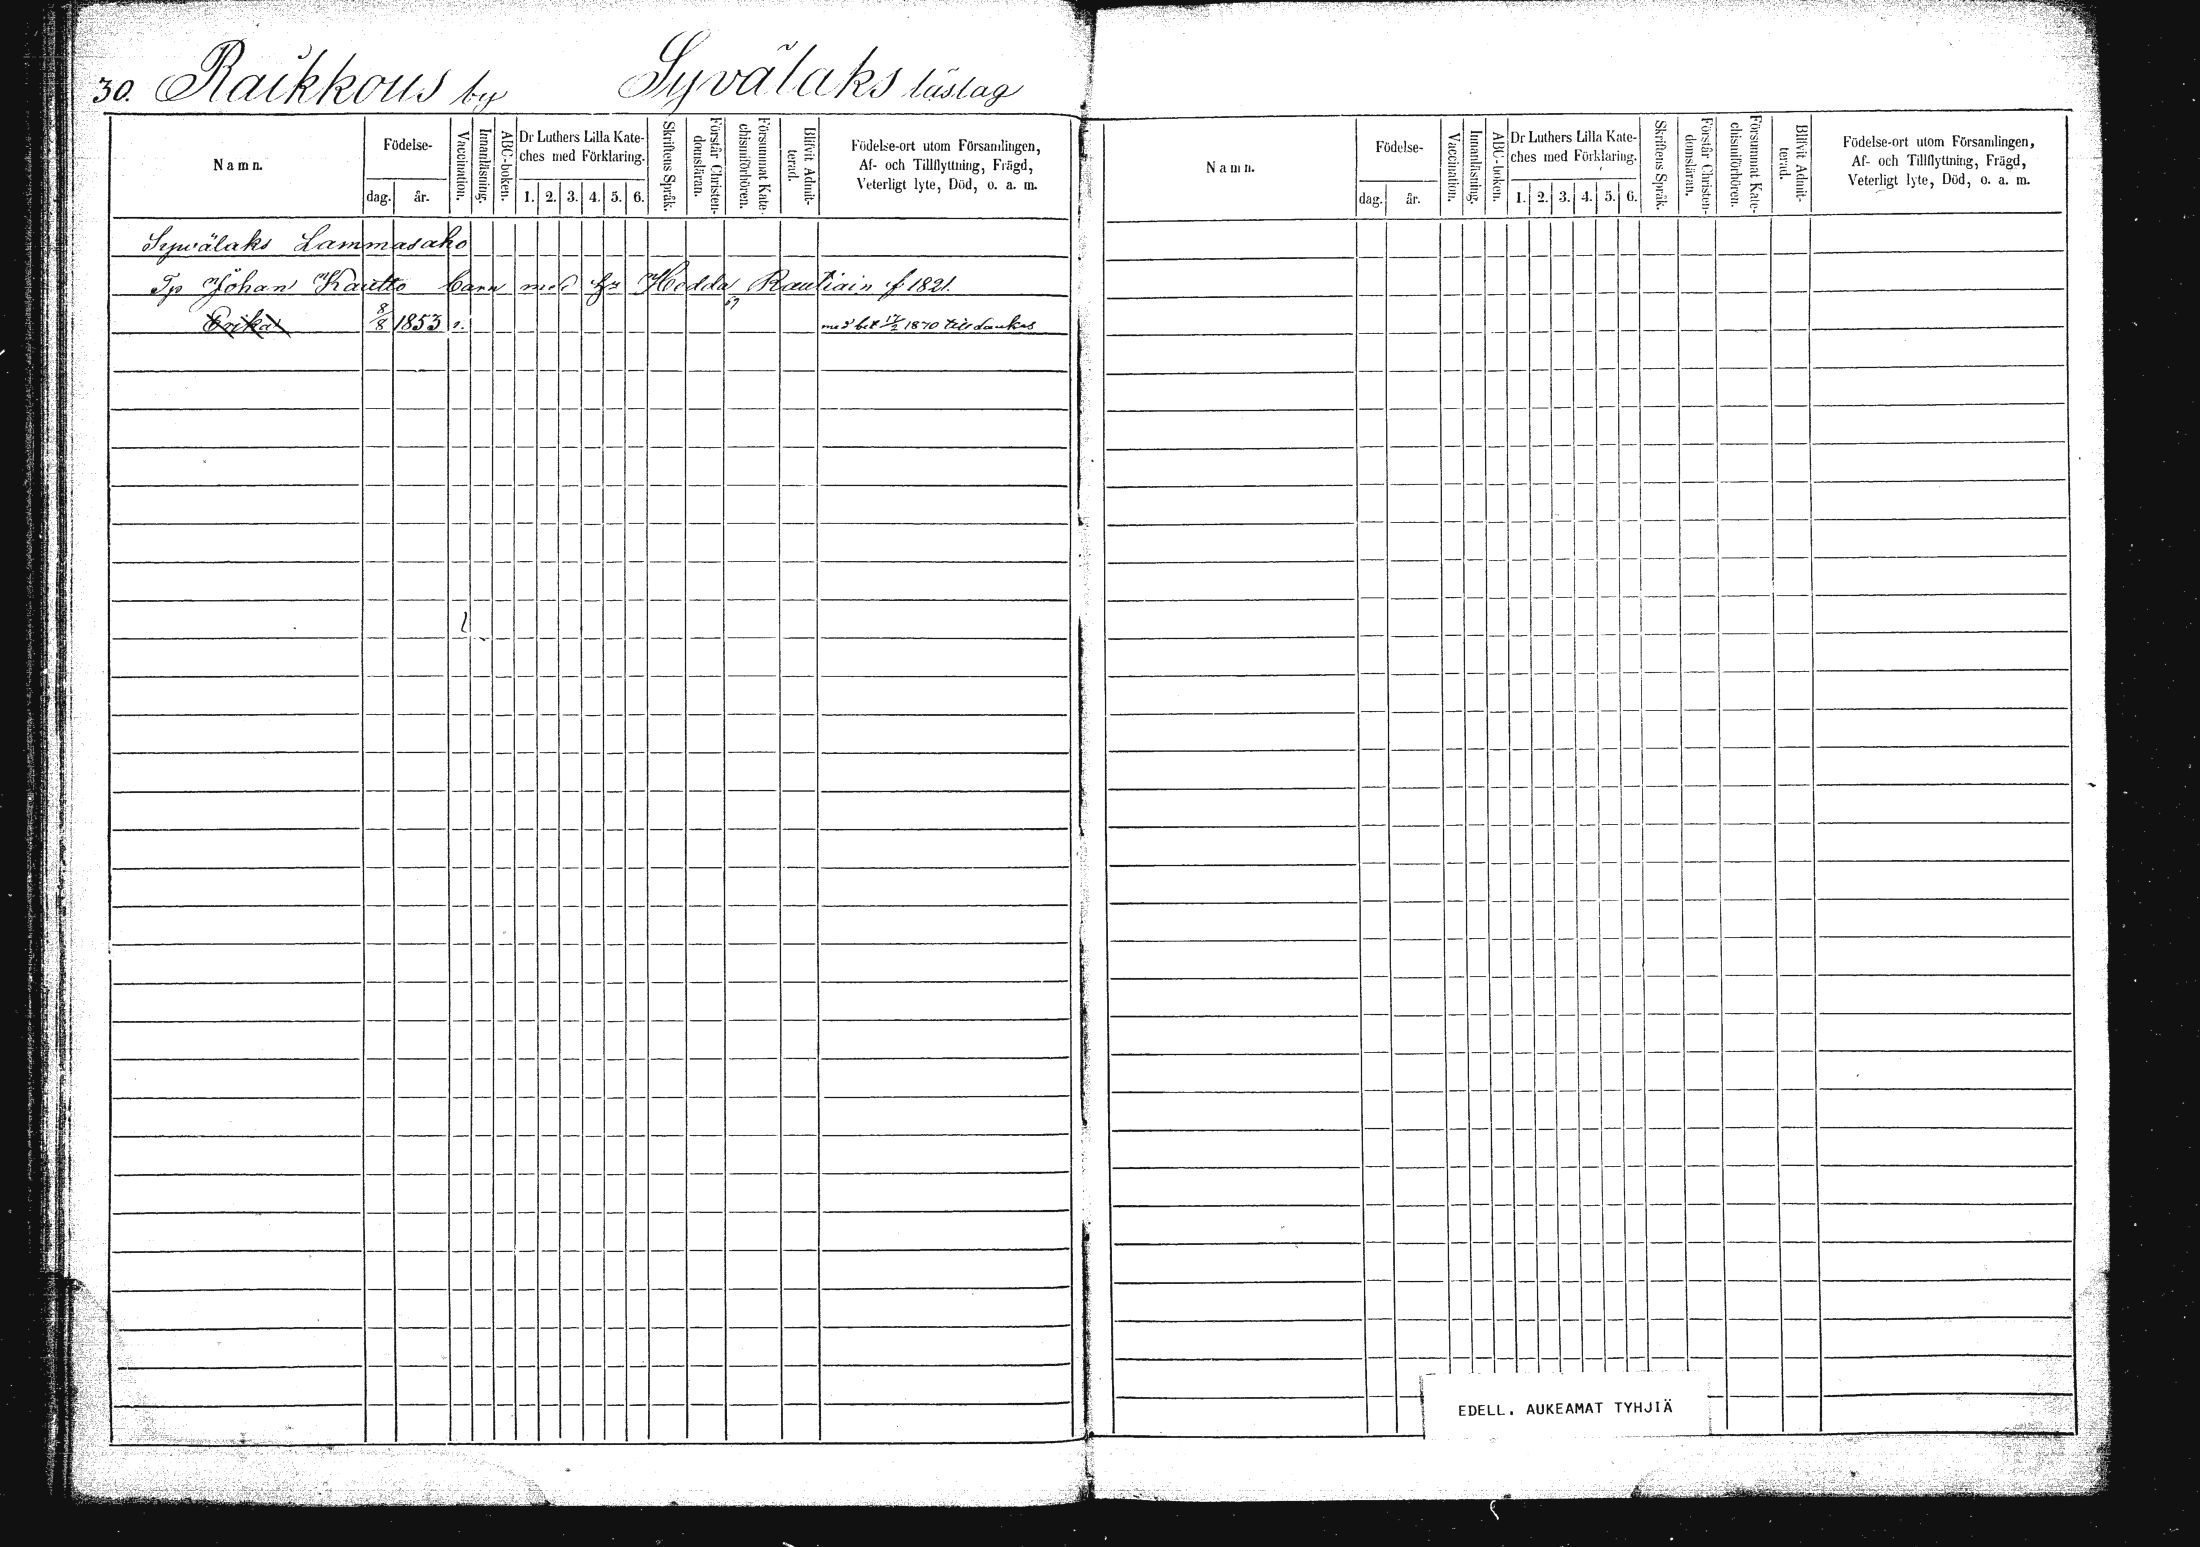 30. Raikkous by Syvälaks läslag
Namn.
Födelse-
dag. år.
Vaccination.
Innanläsning.
ABC-boken.
Dr Luthers Lilla Kate-
ches med Förklaring.
1. 2. 3. 4. 5. 6.
Skriftens Språk.
Förstår Christen-
domsläran.
Försummat Kate-
chismiförhören.
Blifvit Admit-
terad.
Födelse-ort utom Församlingen,
Af- och Tillflyttning, Frägd,
Veterligt lyte, Död, o. a. m.
Syvälaks Lammasaho
Tp Johan Kautto barn med Hedda Rautiain f 1821.
Erika 8/8 1853 med bet 17/2 1870 till
Namn.
Födelse-
dag. år.
Vaccination.
Innanläsning.
ABC-boken.
Dr Luthers Lilla Kate-
ches med Förklaring.
1. 2. 3. 4. 5. 6.
Skriftens Språk.
Förstår Christen-
domsläran.
Försummat Kate-
chismiförhören.
Blifvit Admit-
terad.
Födelse-ort utom Församlingen,
Af- och Tillflyttning, Frägd,
Veterligt lyte, Död, o. a. m.
EDELL. AUKEAMAT TYHJIÄ